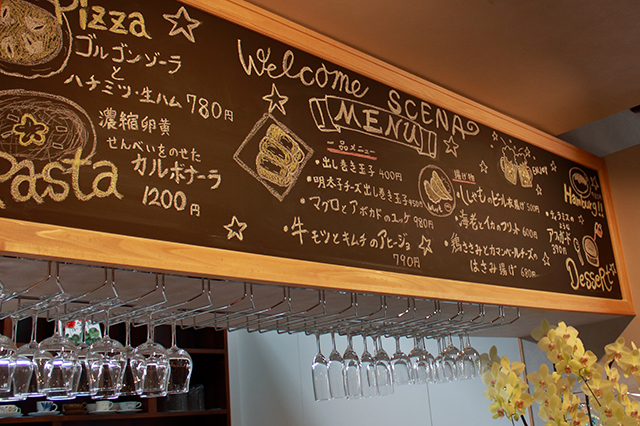 Pizza
ゴルゴンゾーラ
と
ハチミツ・生ハム 780円
濃縮卵黄
せんべいをのせた
カルボナーラ
1200円
Pasta
Welcome SCENA
MENU
一品メニュー
・出し巻き玉子 400円
・明太チーズ出し巻き玉子 450円
・マグロとアボカドのユッケ 980円
・牛モツとキムチのアヒージョ
790円
揚げ物
500円
・海老とイカのフリット 600円
・鶏ささみとカマンベールチーズの
はさみ揚げ 680円
Hamburg!!
Dessert